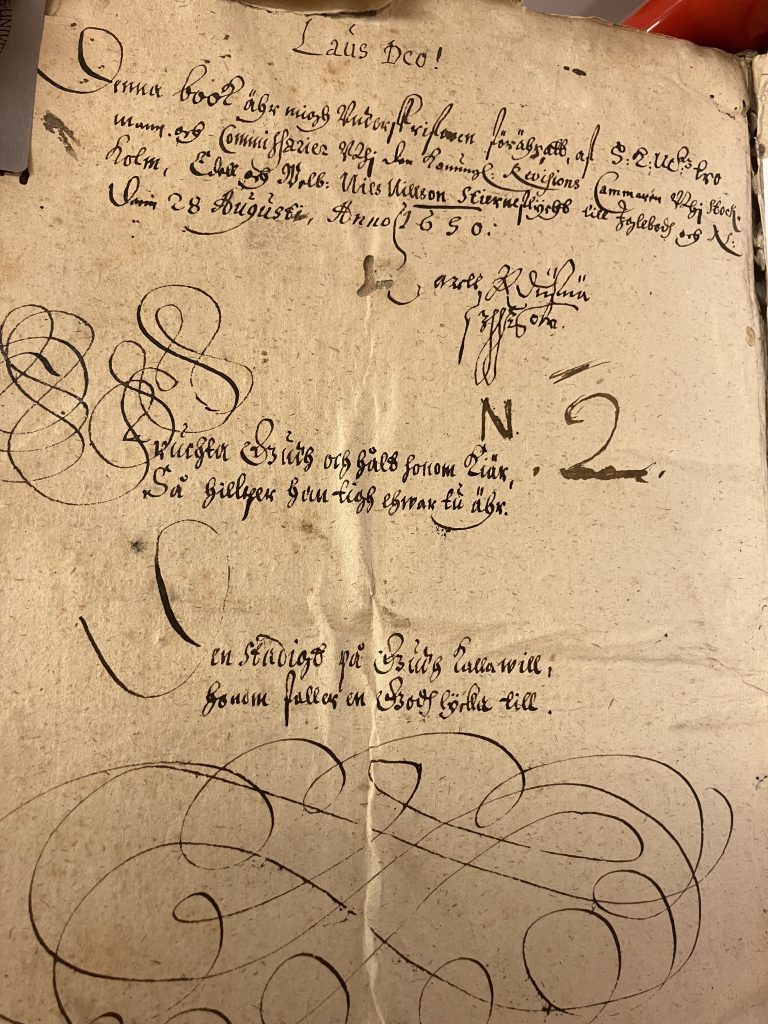 Laus Deo!
Denna book ähr migh Underskrifwen förähratt, af S: K: M:tz tro
mann och Commissarier Uthj den Konungl: Revisions Cammaren Uthj Stock-
holm, Edell och Welb: Nils Nillson Stierneflycht till och
Dänn 28 Augusti, Anno 1650:
N. 2.
Fruchta Gudh och hålt honom Kiär,
Så hillper han tigh ehwar tu ähr.
en stadigt på Gudh kalla will,
honom faller en Godh lycka till.